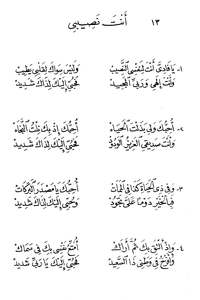 ١٣ أَنْتَ نَصِيبِي
١- يَا فَادِيَّ أَنْتَ لِنَفْسِي النَّصِيب وَلَيْسَ سِوَاكَ لِقَلْبِي يَطِيب
وَأَنْتَ إِلٰهِي وَرَبِّي الْمَجِيد فَحُبِّي إِلَيْكَ لِذَاكَ شَدِيد
٢- أُحِبُّكَ وَلِي بَذَلْتَ الْحَيَاة أُحِبُّكَ إِذْ بِكَ نِلْتُ النَّجَاة
وَأَنْتَ صَدِيقِي الْعَزِيزُ الْوَدُود فَحُبِّي إِلَيْكَ لِذَاكَ شَدِيد
٣- وَفِي ذِي الْحَيَاةِ كَذَا فِي الْمَمَات أُحِبُّكَ يَا مَصْدَرَ الْبَرَكَات
دَوْمًا عَلَيَّ تَجُود وَحُبِّي إِلَيْكَ لِذَاكَ شَدِيد
٤- وَإِذْ أَلْتَقِي بِكَ ثَمَّ أَرَاكَ أُمَتِّعُ نَفْسِي بِكَ فِي سَمَاكَ
وَأَفْرَحُ فِي وَطَنِي ذَا السَّعِيد فَحُبِّي إِلَيْكَ يَا رَبِّي شَدِيد